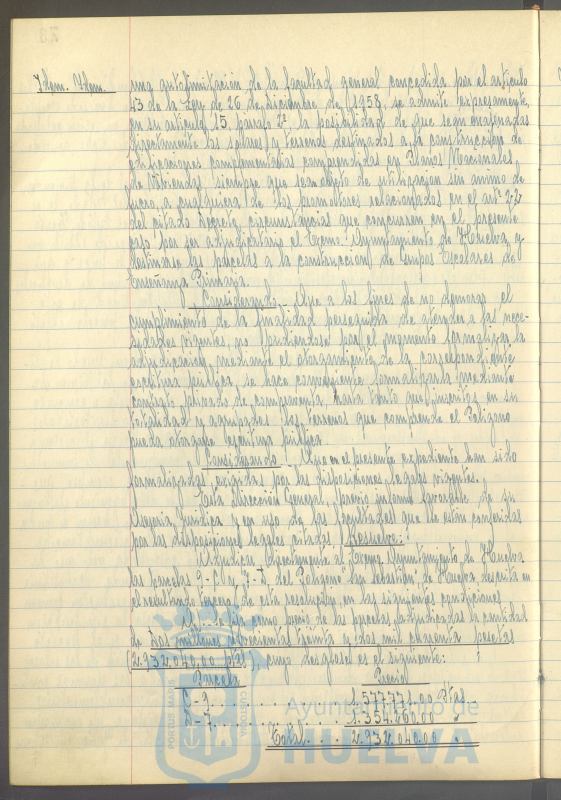 Idem. Idem.
una autolimitación de la facultad general concedida por el artículo
43 de la Ley de 26 de diciembre de 1958, se admite expresamente,
en su artículo 15 párrafo 2º la posibilidad de que sean enajenadas
directamente los solares y terrenos destinados a la construcción de
edificaciones complementarias comprendidas en Planes Nacionales
de Viviendas, siempre que sean objeto de utilización sin ánimo de
lucro, a cualquiera de los promotores relacionados en el artº 22
del citado Decreto, circunstancias que concurren en el presente
caso por ser adjudicatario el Excmo. Ayuntamiento de Huelva, y
destinarse las parcelas a la construcción de Grupos Escolares de
Enseñanza Primaria.
Considerando.- Que a los fines de no demorar el
cumplimiento de la finalidad perseguida de atender a las nece-
sidades vigentes, no pudiéndose por el momento formalizar la
adjudicación, mediante el otorgamiento de la correspondiente
escritura pública, se hace conveniente formalizarla mediante
contrato privado de compraventa, hasta tanto que inscritos en su
totalidad y agrupados los terrenos que comprende el Polígono
pueda otorgarse escritura pública.
Considerando.- Que en el presente expediente han sido
formalizadas exigidas por las disposiciones legales vigentes.
Esta Dirección General, previo informe favorable de su
Asesoría Jurídica y en uso de las facultades que le están conferidas
por las disposiciones legales citadas Resuelve:
Adjudicar directamente al Excmo. Ayuntamiento de Huelva
las parcelas 9-C y 7-D del Polígono "San Sebastián" de Huelva, descrita en
el resultando tercero de esta resolución, en las siguientes condiciones
fija como precio de las parcelas adjudicadas la cantidad
de Dos millones novecientas treinta y dos mil cuarenta pesetas
(2.932.040,00 ptas) cuyo desglose es el siguiente:
Parcela Precio
C-9 . . . . . . . . . 1.577.771.00 Ptas
D-7 . . . . . . . . . 1.354.260.00 "
Total . . . 2.932.040.00 "
Ayuntamiento de
HUELVA
PORTUS MARIS
CUSTODIA